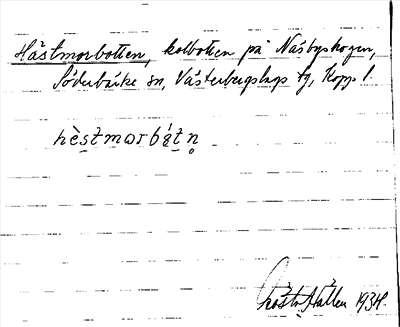 Hästmorbotten, kolbotten på Näsbyskogen,
Söderbärke sn, Västerbergslags tg, Kopp. l.
hèstmorbótn̥
Gösta Hallén 1934.